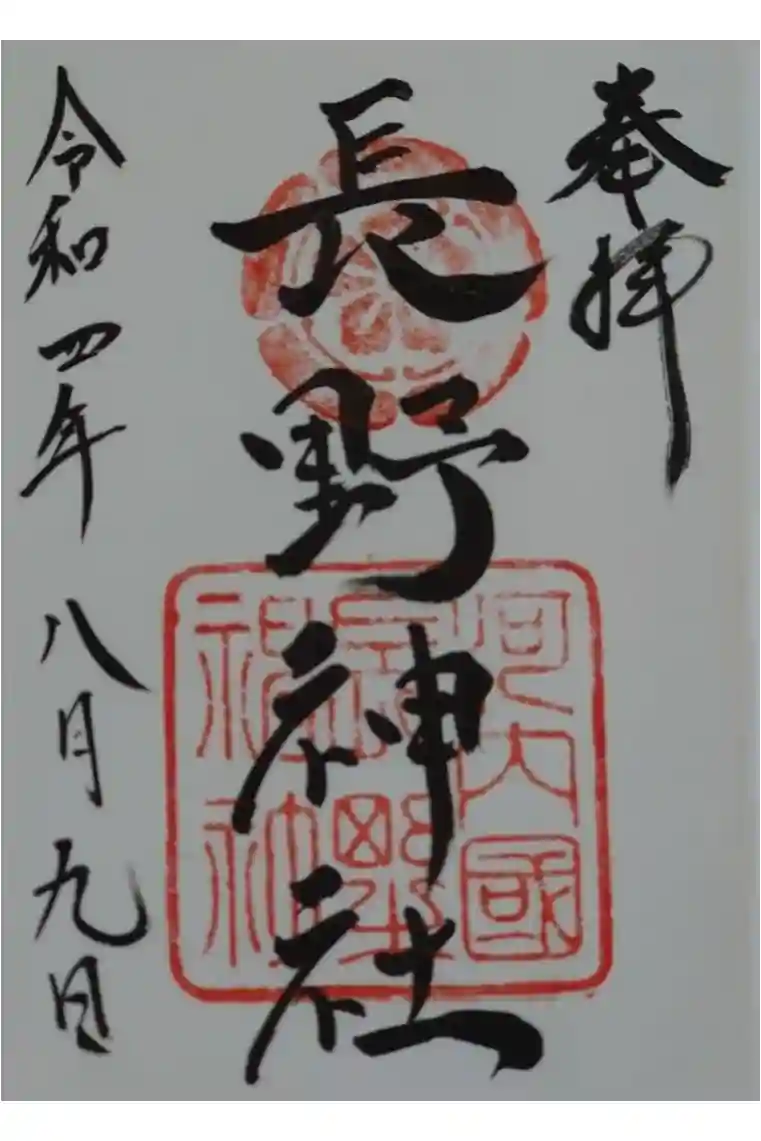 奉拝
長野神社
河内國
長野
神社
令和四年八月九日